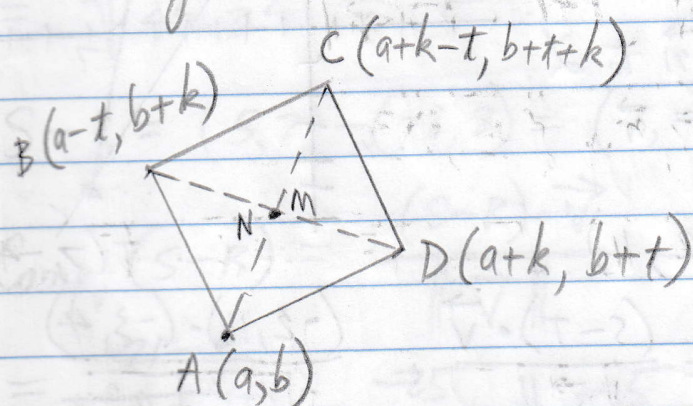 C (a+k-t, b+t+k)
B (a-t, b+k)
N M
D (a+k, b+t)
A (a,b)